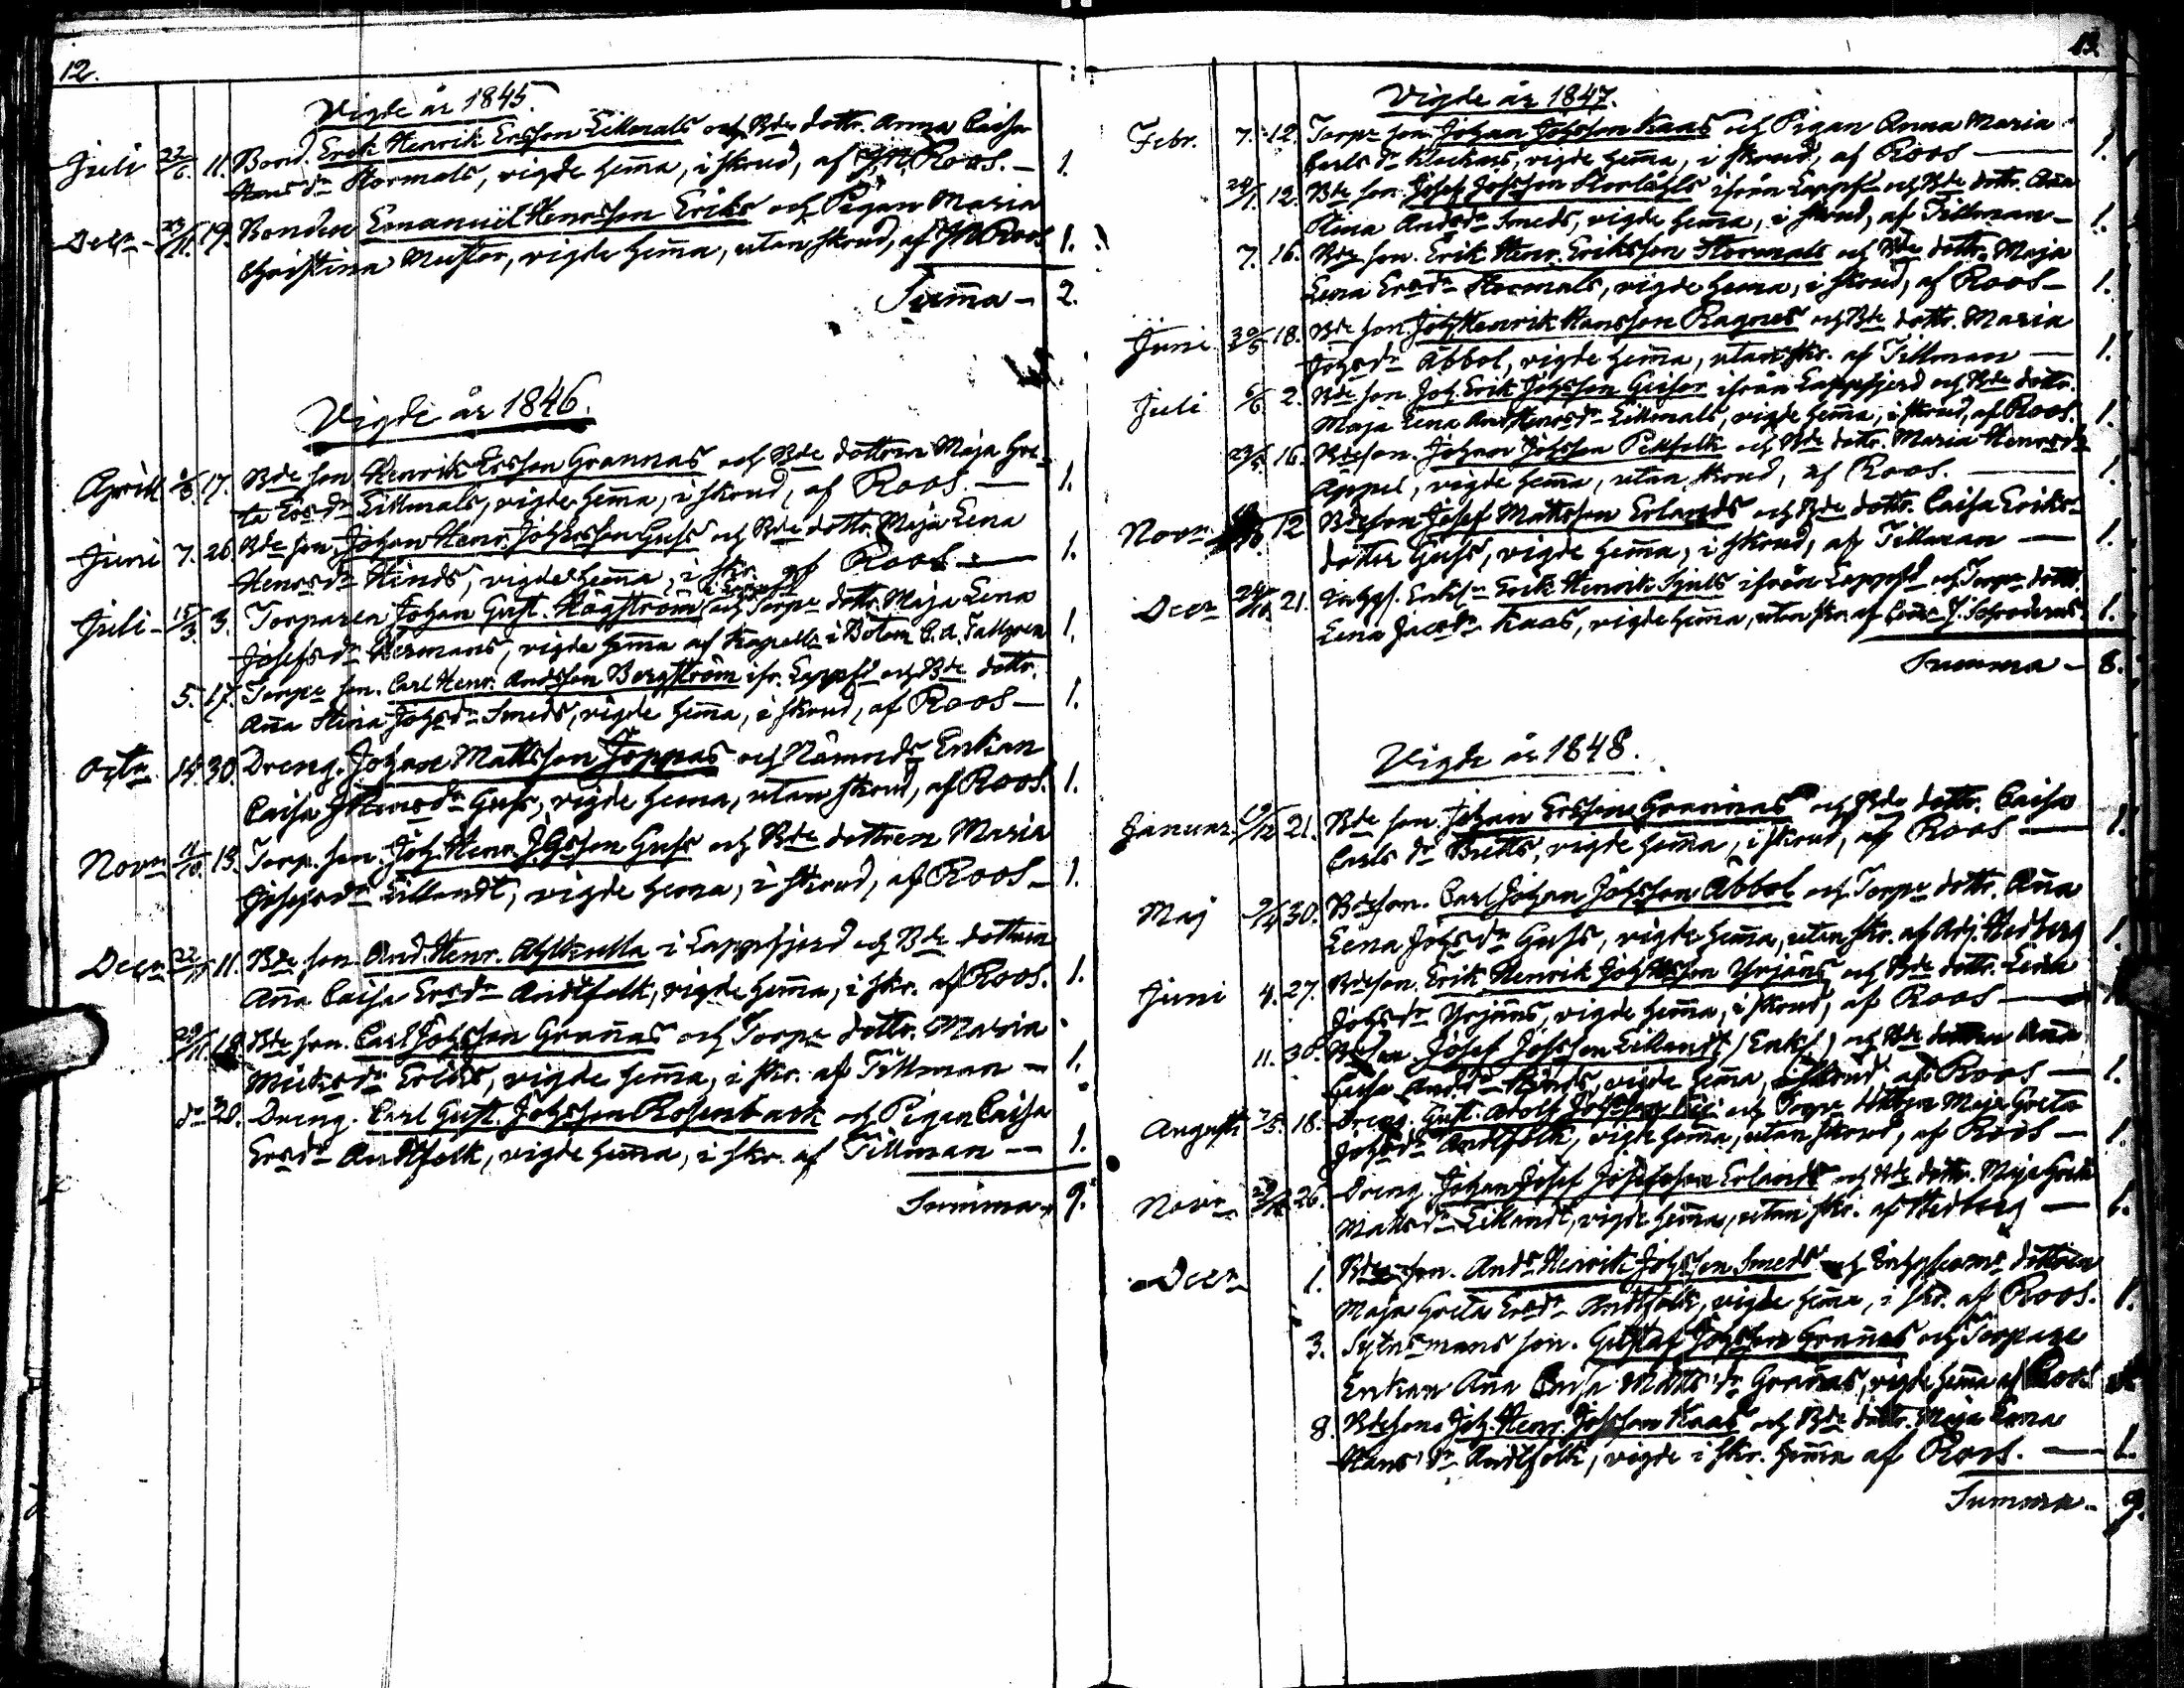 12.
Vigde år 1845.
Juli 22/6 11. Bond. Erik Henrik Ersson Lillmals och Bde dottr. Anna Caisa
Hansdr Stormals, vigde hema, i skrud, af J.N. Roos. — 1.
Decr 23/11. 19. Bonden Emanuel Henrsson Eriks och Pigan Maria
Christina Muster, vigde hema, utan skrud, af JN Roos 1.
Suma — 2.
Vigde år 1846.
Aprill 17. Bde son Henrik Ersson Grannas och Bde dottren Maja Gre-
ta Ersdr Lillmals, vigde hema, i skrud, af Roos. — 1.
Juni 7. 26. Bde son Johan Henr. Guss och Bde dottr. Maja Lena
Henrsdr Hinds, vigde hema, i skr. af Roos — 1.
Juli 15/3. 3. Torparen Johan Gust. Högström och Torpe dottr. Maja Lena
Josefsdr Hermans, vigde hema af Kapell. i Bötom C.A. Tallgren 1.
5. 17. Torpe son. Carl Henr. Andsson Bergström ifr. Lappfd och Bde dottr.
Aña Stina Johsdr Smeds, vigde hema, i skrud, af Roos — 1.
Octr 14. 30. Dreng. Johan Mattsson Joppas och Nämnds Enkan
Caisa Henrsdr Guss, vigde hema, utan skrud, af Roos. 1.
Novr 11/10. 13. Torp. son. Joh. Henr. Johsson Guss och Bde dottren Maria
Josefsdr Lillandt, vigde hema, i skrud, af Roos — 1.
Decr 22/11 11. Bde son And. Henr. Ahlkulla i Lappfjerd och Bde dottren
Aña Caisa Ersdr Andtfolk, vigde hema, i skr. af Roos. 1.
29/11. 18. Bde son. Carl Johsson Grañas och Torpe dottr. Maria
Mickrsdr Eriks, vigde hema, i skr. af Tillman — 1.
dr 28. Dreng. Carl Gust. Johsson Rosenback och Pigan Caisa
Ersdr Andtfolk, vigde hema, i skr. af Tillman — 1.
Summa 9.
13.
Vigde år 1847.
Febr. 7. 12. Torpe son Johan Johsson Kaas och Pigan Anna Maria
Carls dr Klockars, vigde hema, i skrud, af Roos — 1.
24/1. 12. Bde son Josef Johsson Storkåhls ifrån Lappfd och Bde dottr. Aña
Stina Andsdr Smeds, vigde hema, i skrud, af Tillman — 1.
7. 16. Bde son. Erik Henr. Eriksson Stormals och Bde dottr. Maja
Lena Ersdr Stormals, vigde hema, i skrud, af Roos — 1.
Juni 30/5 18. Bde son. Joh Henrik Hansson Ragnes och Bde dottr. Maria
Johsdr Åbbol, vigde hema, utan skr. af Tillman — 1.
Juli 6/6. 2. Bde son Joh. Erik Johsson Geisor ifrån Lappfjerd och Bde dottr.
Maja Lena And Henrsdr Lillmals, vigde hema, i skrud, af Roos. 1.
16. Bdeson. Johan Johsson Pellfolk och Bde dottr. Maria Henrsdr
Äppel, vigde hema, utan skrud, af Roos. — 1.
Novr 12 Bdeson Josef Mattsson Erlands och Bde dottr. Caisa Eriks-
dotter Guss, vigde hema, i skrud, af Tillman — 1.
Decr 24/10 21. Inhys. Enkl. Erik Henrik Sjuls ifrån Lappfd och Torpe dottr.
Lena Jacsdr Kaas, vigde hema, utan skr. af 1.
Summa — 8.
Vigde år 1848.
Januar. 21. Bde son Johan Ersson Grannas och Bde dottr. Caisa
Carls dr Butts, vigde hema, i skrud, af Roos — 1.
Maj 9/4 30. Bdeson. Carl Johan Johsson Åbbol och Torpe dottr. Aña
Lena Johsdr Guss, vigde hema, utan skr. af Adj. Hedberg 1.
Juni 4. 27. Bdeson. Erik Henrik Johsson Yrjäns och Bde dottr. Lena
Johsdr Yrjäns, vigde hema, i skrud, af Roos —
11. 30. Bdeson Josef Johsson Lillandt (Enkl.) och Bde dottren Aña
Caisa Andsdr Hinds, vigde hema, i skrud af Roos — 1.
Augusti 18. Dreng. Gust. Adolf och Torpe dottren Maja Greta
Johsdr Andtfolk, vigde hema, utan skrud, af Roos — 1.
Novr 26. Dreng. Johan Josef Josefsson Erlands och Bde dottr. Maja Greta
Mattsdr Lillandt, vigde hema, utan skr. af Hedberg — 1.
Decr 1. Bde son. Ands Henrik Johsson Smeds och dottren
Maja Greta Ersdr Andtfolk, vigde hema, i skr. af Roos. 1.
3. Sytnsmans son. Gustaf Johsson Grañas och Torpare
Enkan Aña Caisa Mattsdr Grañas, vigde hema af Roos
8. Bdeson Joh. Henr. Johsson Kaas och Bde dottr. Maja Lena
Hans dr Andtfolk, vigde i skr. hema af Roos. — 1.
Summa — 9.